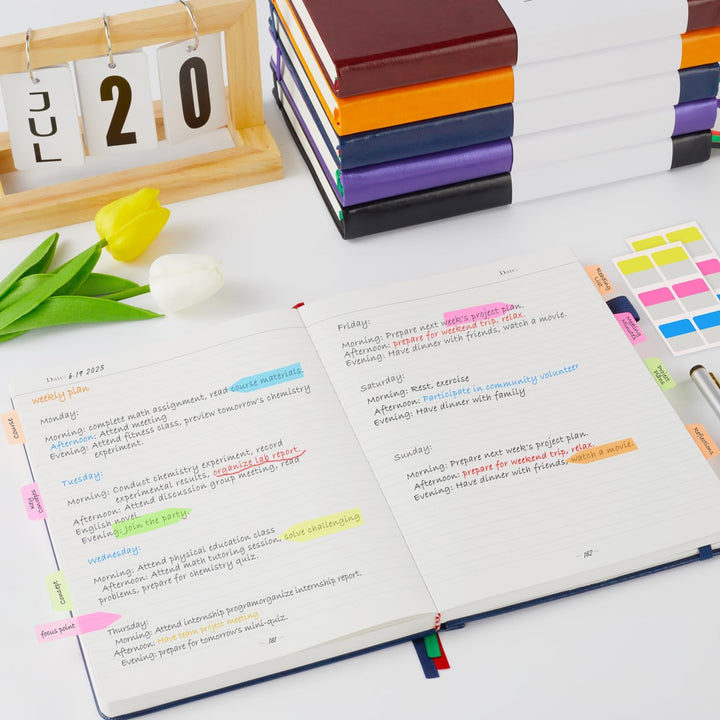 JUL
20
Date: 6.19 2025
weekly plan
Monday:
Morning: complete math assignment, read course materials.
Afternoon: Attend meeting
Evening: Attend fitness class, preview tomorrow's chemistry
experiment.
Tuesday:
Morning: Conduct chemistry experiment, record
experimental results, organize lab report.
Afternoon: Attend discussion group meeting, read
English novel.
Evening: Join the party.
Wednesday:
Morning: Attend physical education class
Afternoon: Attend math tutoring session, solve challenging
problems, prepare for chemistry quiz.
Thursday:
Morning: Attend internship programorganize internship report.
Afternoon: Have team project meeting
Evening: prepare for tomorrow's mini-quiz.
181
Course
Key
Concepts
Concept
focus point
Date:
Friday:
Morning: Prepare next week's project plan.
Afternoon: prepare for weekend trip, relax.
Evening: Have dinner with friends, watch a movie.
Saturday:
Morning: Rest, exercise
Afternoon: Participate in community volunteer
Evening: Have dinner with family
Sunday:
Morning: Prepare next week's project plan.
Afternoon: prepare for weekend trip, relax.
Evening: Have dinner with friends, watch a movie.
182
Meeting
Minutes
Project